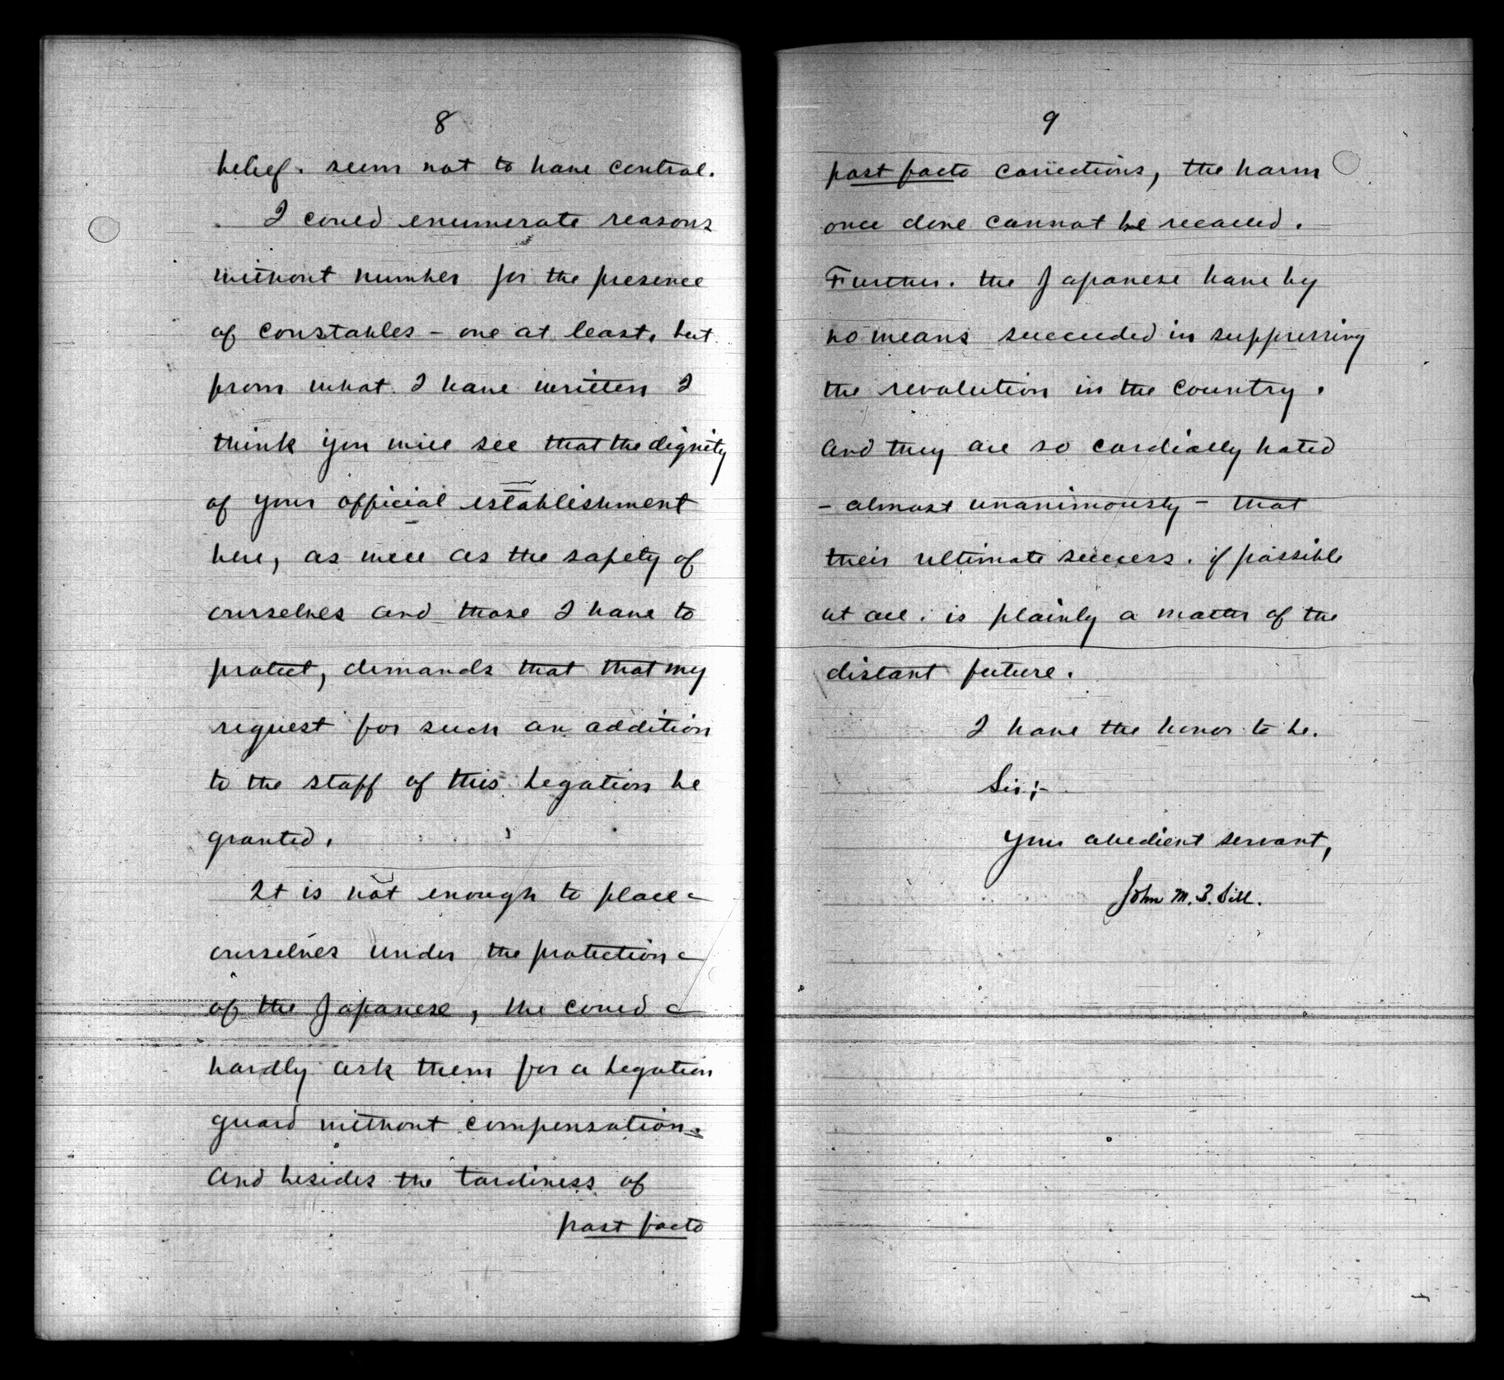 8
belief. seem not to have control.
I could enumerate reasons
without number for the presence
of constables – one at least. but
from what I have written I
think you will see that the dignity
of your official establishment
here, as well as the safety of
ourselves and those I have to
protect, demands that that my
request for such an addition
to the staff of this Legation be
granted.
It is not enough to place
ourselves under the protection
of the Japanese, the could
hardly ask them for a Legation
guard without compensation.
And besides the tardiness of
post facto
9
post facto corrections, the harm
once done cannot be recalled.
Further. the Japanese have by
no means succeeded in suppressing
the revolution in the country.
And they are so cordially hated
– almost unanimously – that
their ultimate success. if possible
at all. is plainly a matter of the
distant future.
I have the honor to be.
Sir;-
Your obedient servant,
John M. B. Sill.